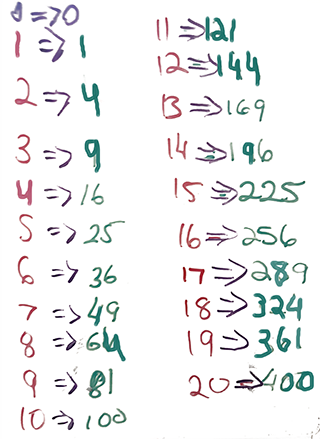 0 => 0
1 => 1
2 => 4
3 => 9
4 => 16
5 => 25
6 => 36
7 => 49
8 => 64
9 => 81
10 => 100
11 => 121
12 => 144
13 => 169
14 => 196
15 => 225
16 => 256
17 => 289
18 => 324
19 => 361
20 => 400